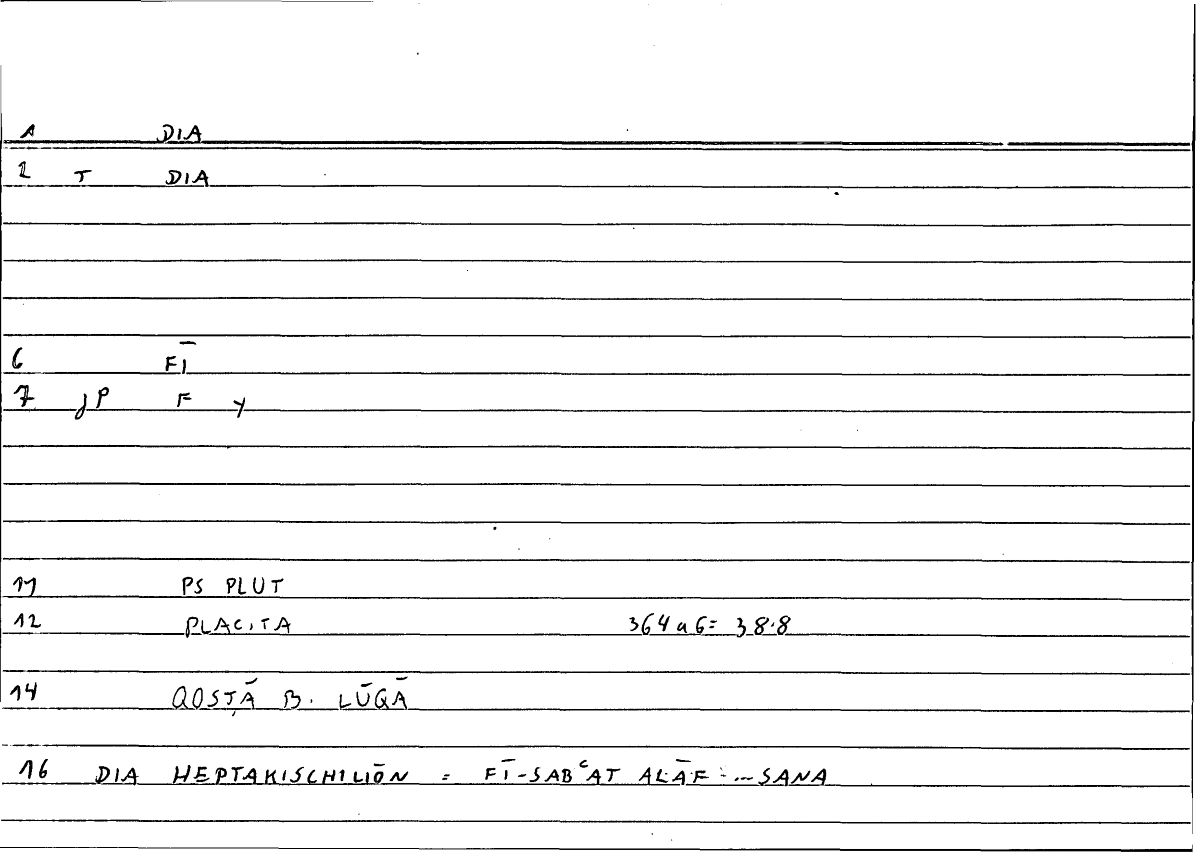 1 DIA
2 T DIA
6 FĪ
7 jP F y
11 PS PLUT
12 PLACITA 364a6= 38.8
14 QOSṬĀ B. LŪQĀ
16 DIA HEPTAKISCHILIŌN = FĪ-SABʿAT ALĀF ... SANA